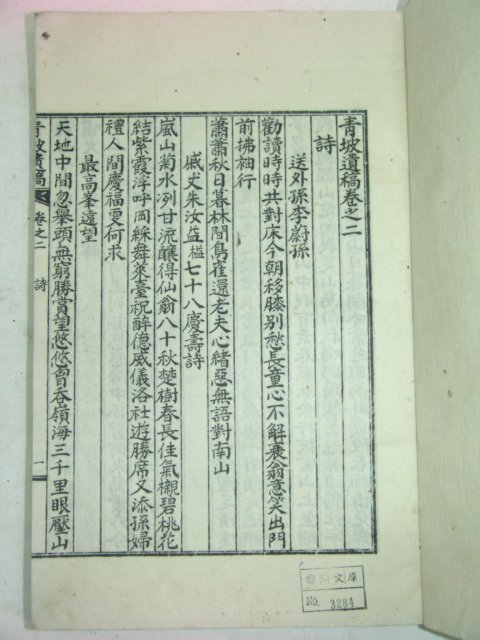 青坡遺稿卷之二
詩
送外孫李蔚孫
勸讀時時共對床今朝移膝別愁長童心不解衰翁意笑出門
前拂袖行
蕭蕭秋日暮林間鳥雀還老夫心緖惡無語對南山
戚丈朱汝益檻七十八慶壽詩
嵐山菊水冽甘流釀得仙翁八十秋楚樹春長佳氣襯碧桃花
結紫霞浮呼岡綵舞萊臺祝醉德威儀洛社遊勝席又添孫婦
禮人間慶福更何求
最高峯遠望
天地中間忽擧頭無窮勝賞望悠悠胷吞嶺海三千里眼壓山
青坡遺稿 卷之二 詩 一
文庫
NO. 3284